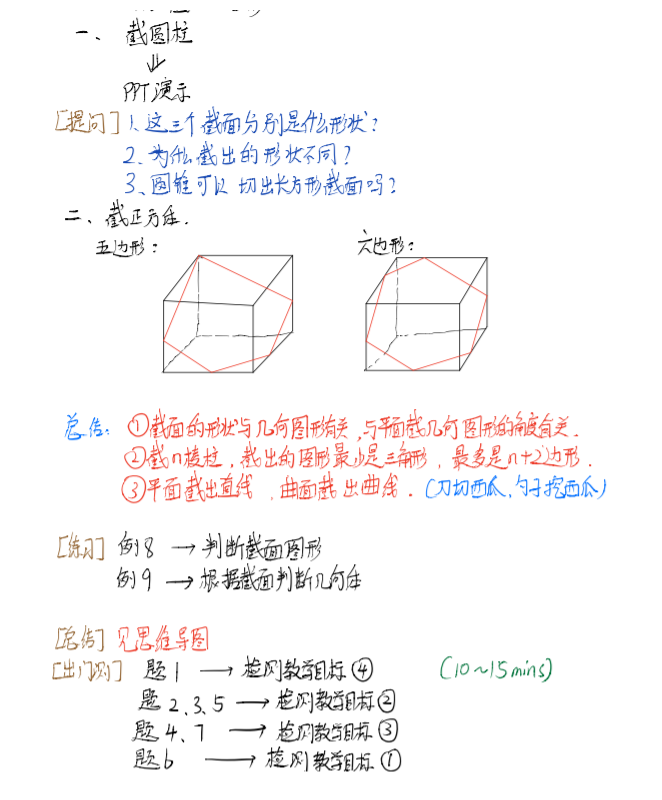 一、截圆柱
PPT演示
[提问] 1、这三个截面分别是什么形状？
2、为什么截出的形状不同？
3、圆锥可以切出长方形截面吗？
二、截正方体.
五边形： 六边形：
总结：①截面的形状与几何图形有关,与平面截几何图形的角度有关.
②截n棱柱，截出的图形最少是三角形，最多是n+2边形.
③平面截出直线，曲面截出曲线.（刀切西瓜、勺子挖西瓜）
[练习] 例8 → 判断截面图形
例9 → 根据截面判断几何体
[总结] 见思维导图
[出门测] 题1 → 检测教学目标④ (10~15mins)
题2、3、5 → 检测教学目标②
题4、7 → 检测教学目标③
题6 → 检测教学目标①